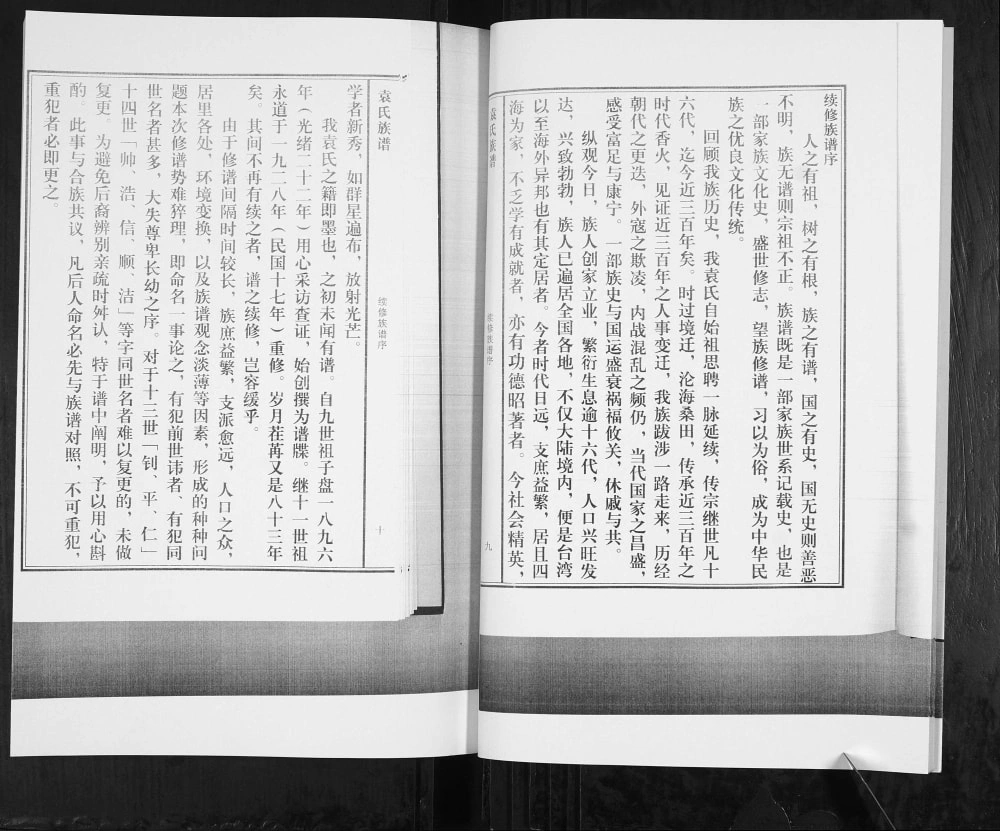 续修族谱序
人之有祖，树之有根，族之有谱，国之有史，国无史则善恶
不明，族无谱则宗祖不正。族谱既是一部家族世系记载史，也是
一部家族文化史，盛世修志，望族修谱，习以为俗，成为中华民
族之优良文化传统。
回顾我族历史，我袁氏自始祖思聘一脉延续，传宗继世凡十
六代，迄今近三百年矣。时过境迁，沧海桑田，传承近三百年之
时代香火，见证近三百年之人事变迁，我族跋涉一路走来，历经
朝代之更迭，外寇之欺凌，内战混乱之频仍，当代国家之昌盛，
感受富足与康宁。一部族史与国运盛衰祸福攸关，休戚与共。
纵观今日，族人创家立业，繁衍生息逾十六代，人口兴旺发
达，兴致勃勃，族人已遍居全国各地，不仅大陆境内，便是台湾
以至海外异邦也有其定居者。今者时代日远，支庶益繁，居且四
海为家，不乏学有成就者，亦有功德昭著者。今社会精英，
袁氏族谱
续修族谱序
九
袁氏族谱
续修族谱序
十
学者新秀，如群星遍布，放射光芒。
我袁氏之籍即墨也，之初未闻有谱。自九世祖子盘一八九六
年（光绪二十二年）用心采访查证，始创撰为谱牒。继十一世祖
永道于一九二八年（民国十七年）重修。岁月荏苒又是八十三年
矣。其间不再有续之者，谱之续修，岂容缓乎。
由于修谱间隔时间较长，族庶益繁，支派愈远，人口之众，
居里各处，环境变换，以及族谱观念淡薄等因素，形成的种种问
题本次修谱势难猝理，即命名一事论之，有犯前世讳者、有犯同
世名者甚多，大失尊卑长幼之序。对于十三世「钊、平、仁」
十四世「帅、浩、信、顺、洁」等字同世名者难以复更的，未做
复更。为避免后裔辨别亲疏时舛认，特于谱中阐明，予以用心斟
酌。此事与合族共议，凡后人命名必先与族谱对照，不可重犯，
重犯者必即更之。